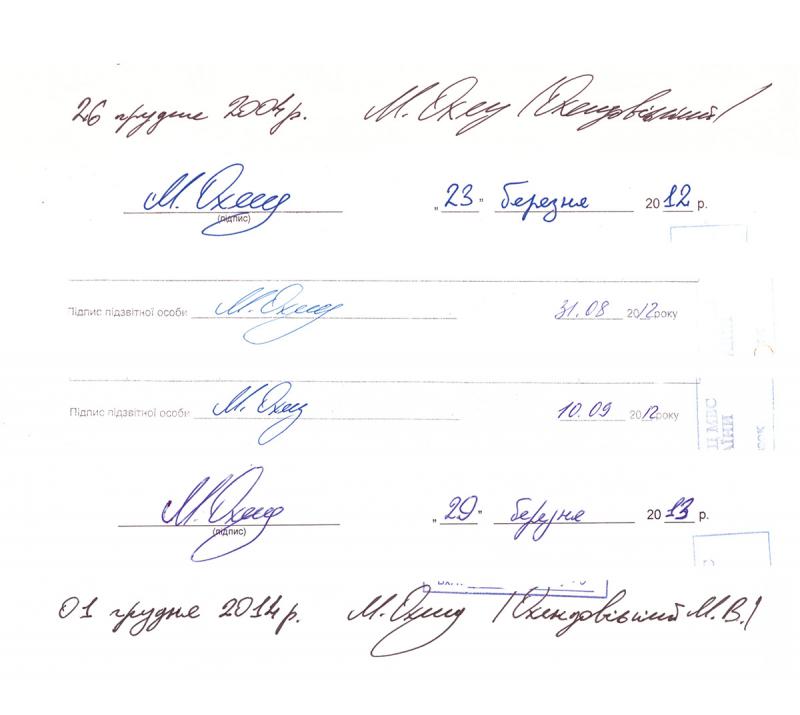 26 грудня 2004 р. М. Охен /Охендовський/
М. Охенд „23" березня 2012 р.
(підпис)
Підпис підзвітної особи М. Охенд 31.08 2012 року
Підпис підзвітної особи М. Охен 10.09 2012 року
ЦІ МВС
М. Охенд „29" березня 2013 р.
(підпис)
01 грудня 2014 р. М. Охенд /Охендовський М.В./